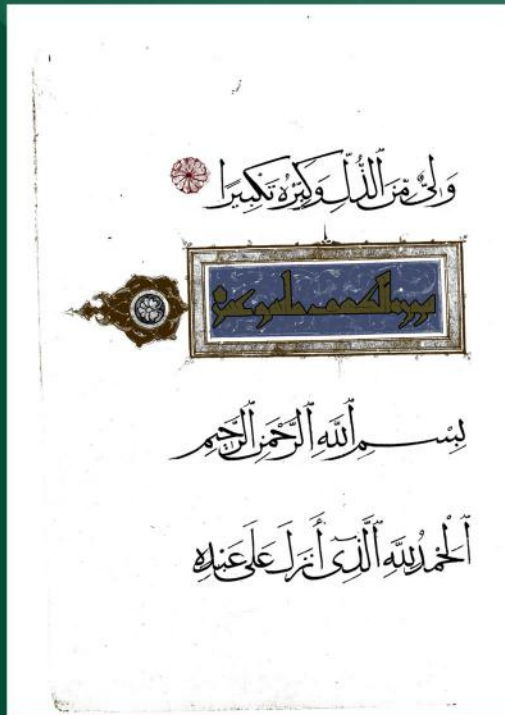 وَلِيٌّ مِّنَ ٱلذُّلِّ وَكَبِّرْهُ تَكْبِيرًا
سورة الكهف
بِسْمِ ٱللَّهِ ٱلرَّحْمَٰنِ ٱلرَّحِيمِ
ٱلْحَمْدُ لِلَّهِ ٱلَّذِىٓ أَنزَلَ عَلَىٰ عَبْدِهِ